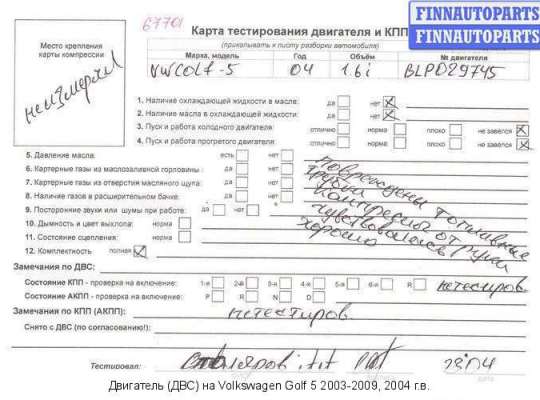 FINNAUTOPARTS
FINNAUTOPARTS
67701
Карта тестирования двигателя и КПП
(прикалывать к листу разборки автомобиля)
Место крепления карты компрессии
неизмеряли
Марка, модель Год Объём № двигателя
VW GOLF-5 04 1.6i BLPD29745
1. Наличие охлаждающей жидкости в масле: да нет
2. Наличие масла в охлаждающей жидкости: да нет
3. Пуск и работа холодного двигателя: отлично норма плохо не завёлся
4. Пуск и работа прогретого двигателя: отлично норма плохо не завёлся
5. Давление масла: есть нет
6. Картерные газы из маслозаливной горловины: да нет
7. Картерные газы из отверстия масляного щупа: да нет
8. Наличие газов в расширительном бачке: да нет
9. Посторонние звуки или шумы при работе: да нет
10. Дымность и цвет выхлопа: норма
11. Состояние сцепления: норма
12. Комплектность полная
Повреждены топливные
трубки
компрессия от руки
чувствовалась
хорошо
Замечания по ДВС:
Состояние КПП - проверка на включение: 1-я 2-я 3-я 4-я 5-я 6-я R нетестиров
Состояние АКПП - проверка на включение: P R N D
Замечания по КПП (АКПП): нетестиров.
Снято с ДВС (по согласованию!):
Тестировал: 23.04
Двигатель (ДВС) на Volkswagen Golf 5 2003-2009, 2004 г.в.